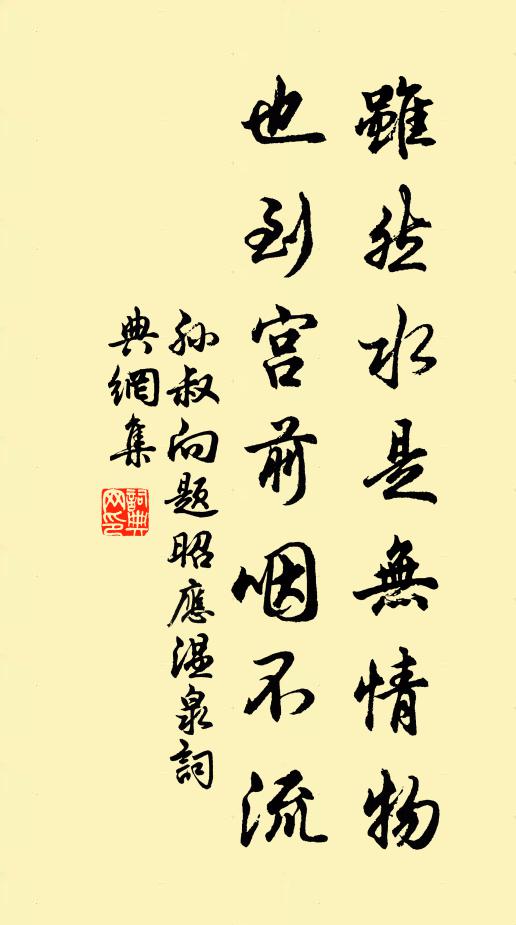 雖然水是無情物
也到宮前咽不流
孫叔向題昭應溫泉詞
典網集
詞典
网印